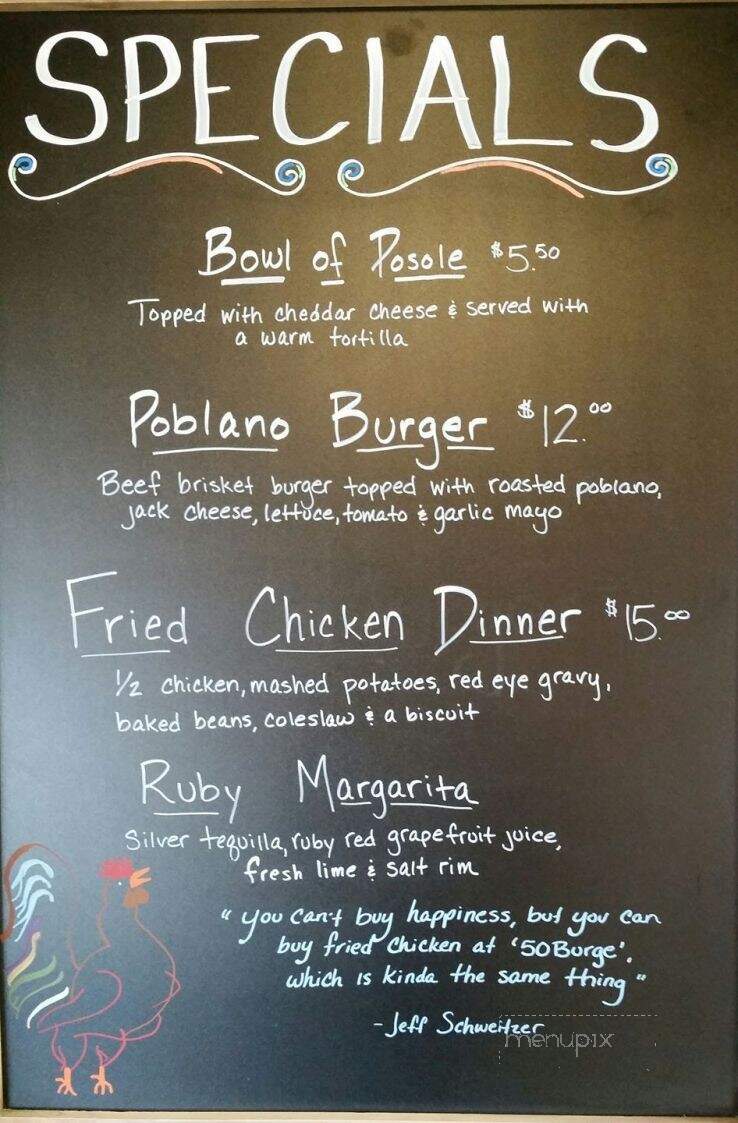 SPECIALS
Bowl of Posole $5.50
Topped with cheddar cheese & served with
a warm tortilla
Poblano Burger $12.00
Beef brisket burger topped with roasted poblano,
jack cheese, lettuce, tomato & garlic mayo
Fried Chicken Dinner $15.00
1/2 chicken, mashed potatoes, red eye gravy,
baked beans, coleslaw & a biscuit
Ruby Margarita
Silver tequilla, ruby red grapefruit juice,
fresh lime & salt rim
"you can't buy happiness, but you can
buy fried chicken at '50Burge'.
which is kinda the same thing"
-Jeff Schweitzer
menupix